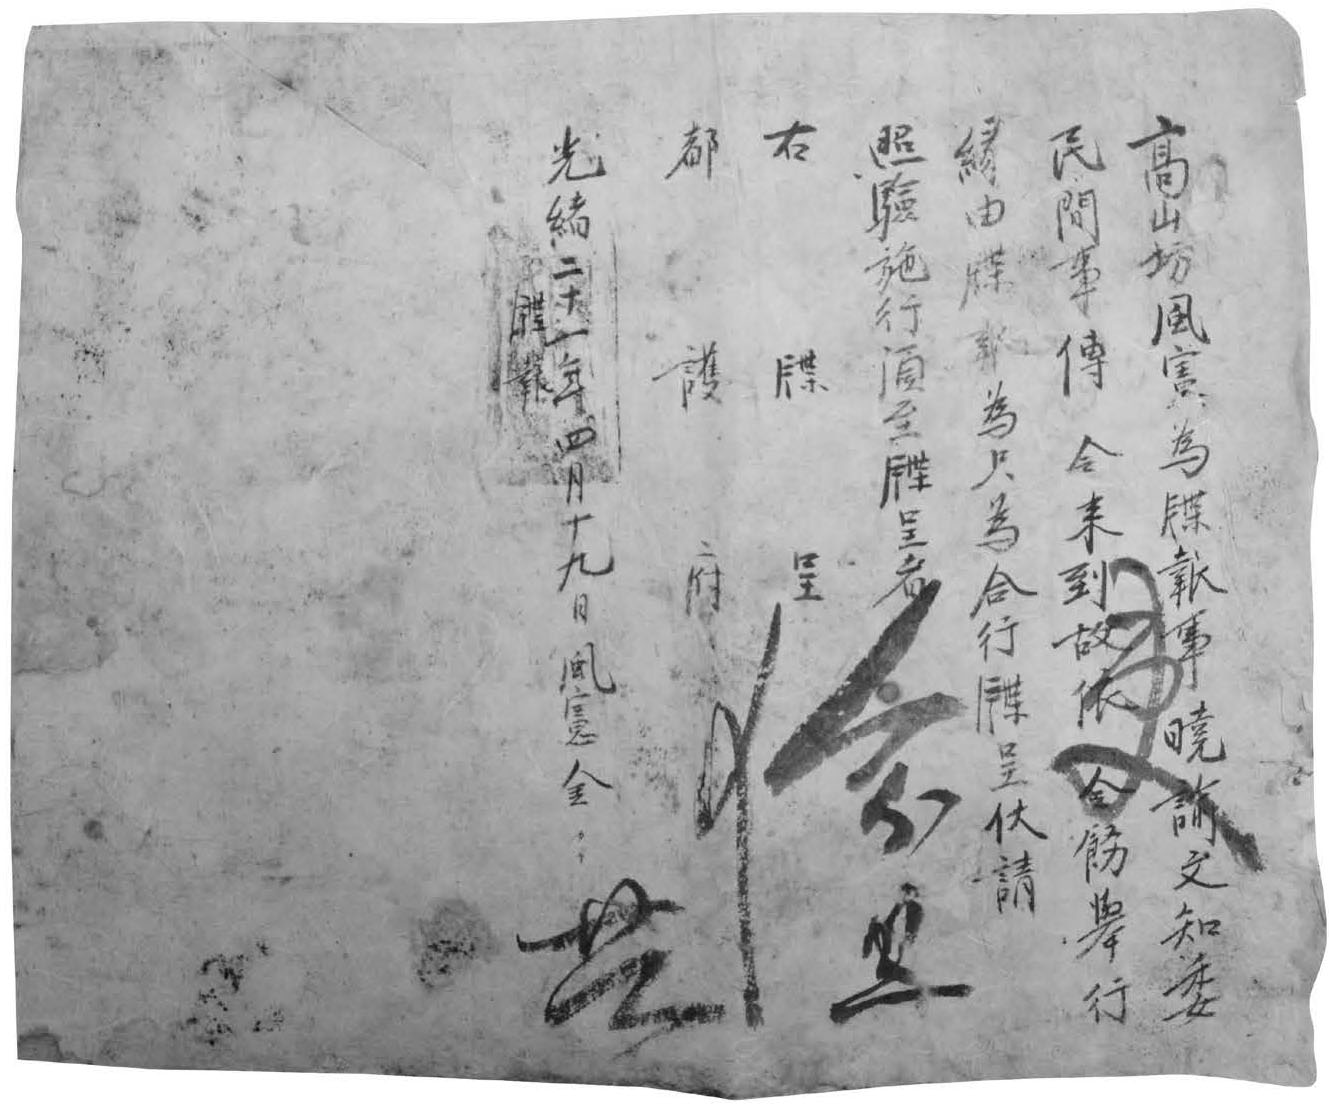 高山坊風憲為牒報事曉諭文知委
民間事傳 令來到故依 令飭擧行
緣由牒報為只為合行牒呈伏請
照驗施行須至牒呈者
右 牒 呈
都 護 府
光緖二十一年四月十九日風憲金
牒報